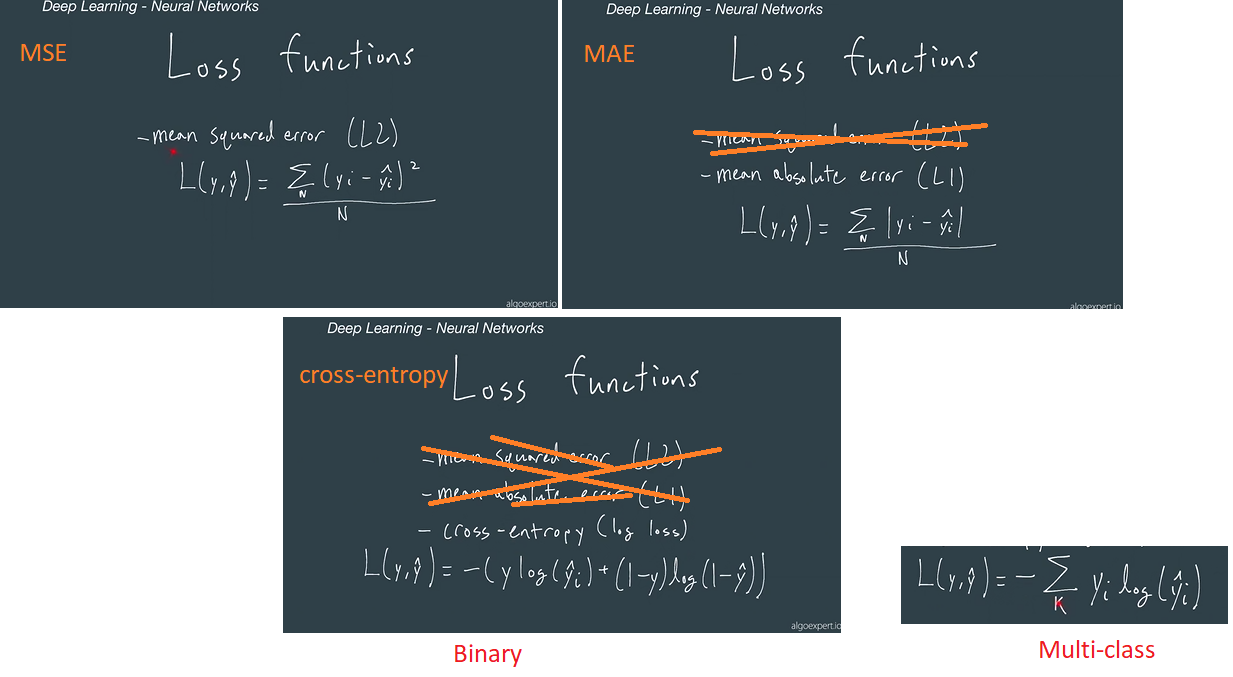 Deep Learning - Neural Networks
MSE
Loss functions
- mean squared error (L2)
L(y,ŷ) = Σ_N (yi - ŷi)² / N
algoexpert.io
Deep Learning - Neural Networks
MAE
Loss functions
- mean squared error (L2)
- mean absolute error (L1)
L(y,ŷ) = Σ_N |yi - ŷi| / N
algoexpert.io
Deep Learning - Neural Networks
cross-entropy
Loss functions
- mean squared error (L2)
- mean absolute error (L1)
- cross-entropy (log loss)
L(y,ŷ) = -(y log(ŷi) + (1-y) log(1-ŷ))
algoexpert.io
Binary
L(y,ŷ) = - Σ_K yi log(ŷi)
Multi-class